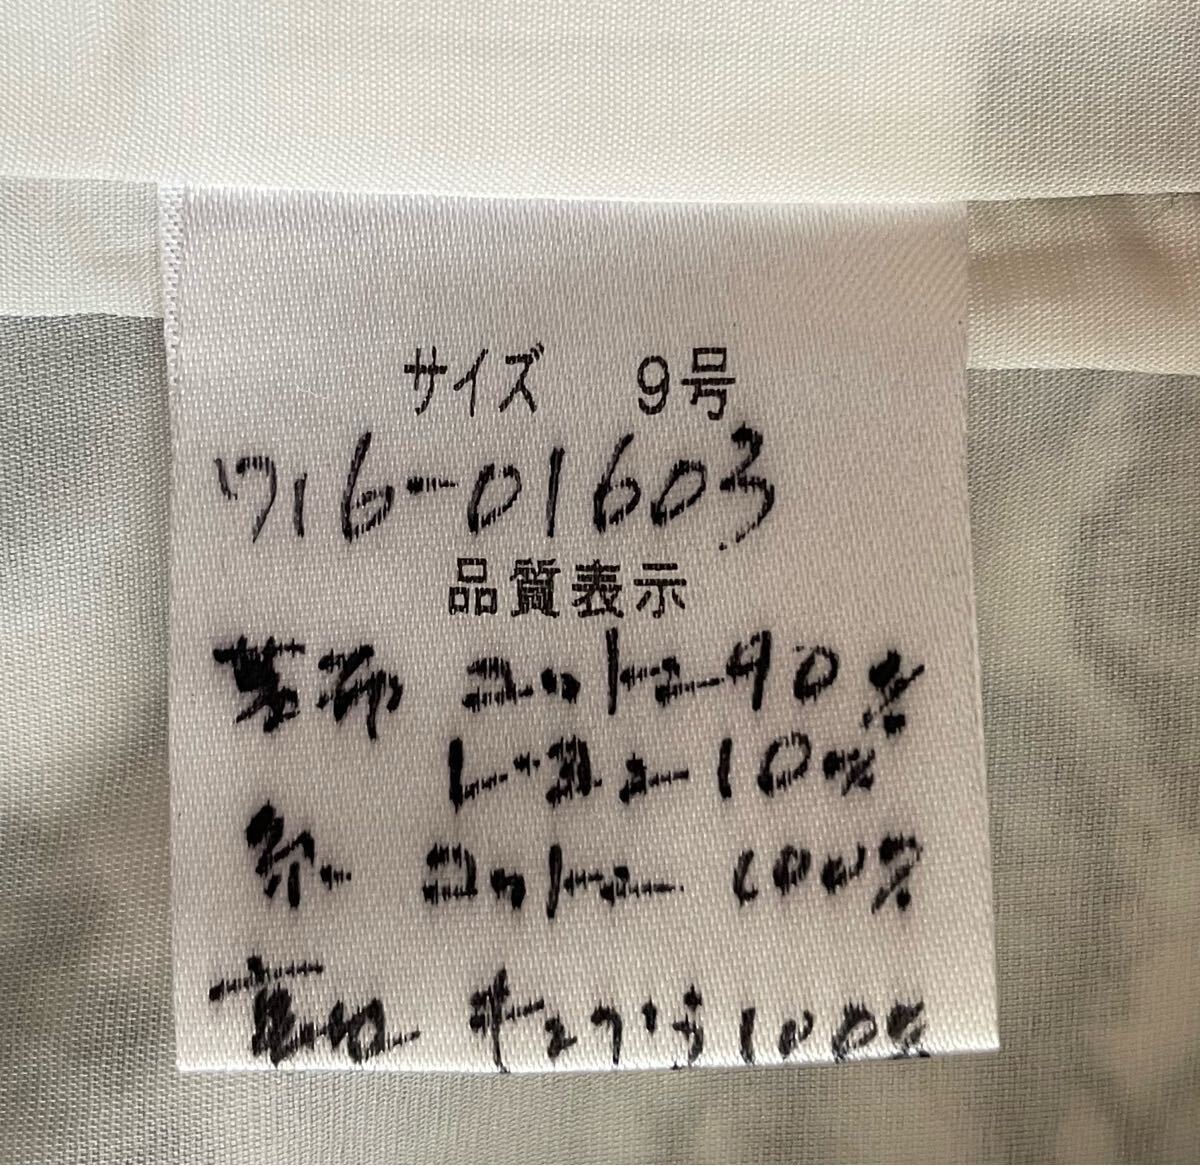 サイズ 9号
716-01603
品質表示
基布 コットン90%
レーヨン10%
糸 コットン 100%
裏地 キュプラ100%